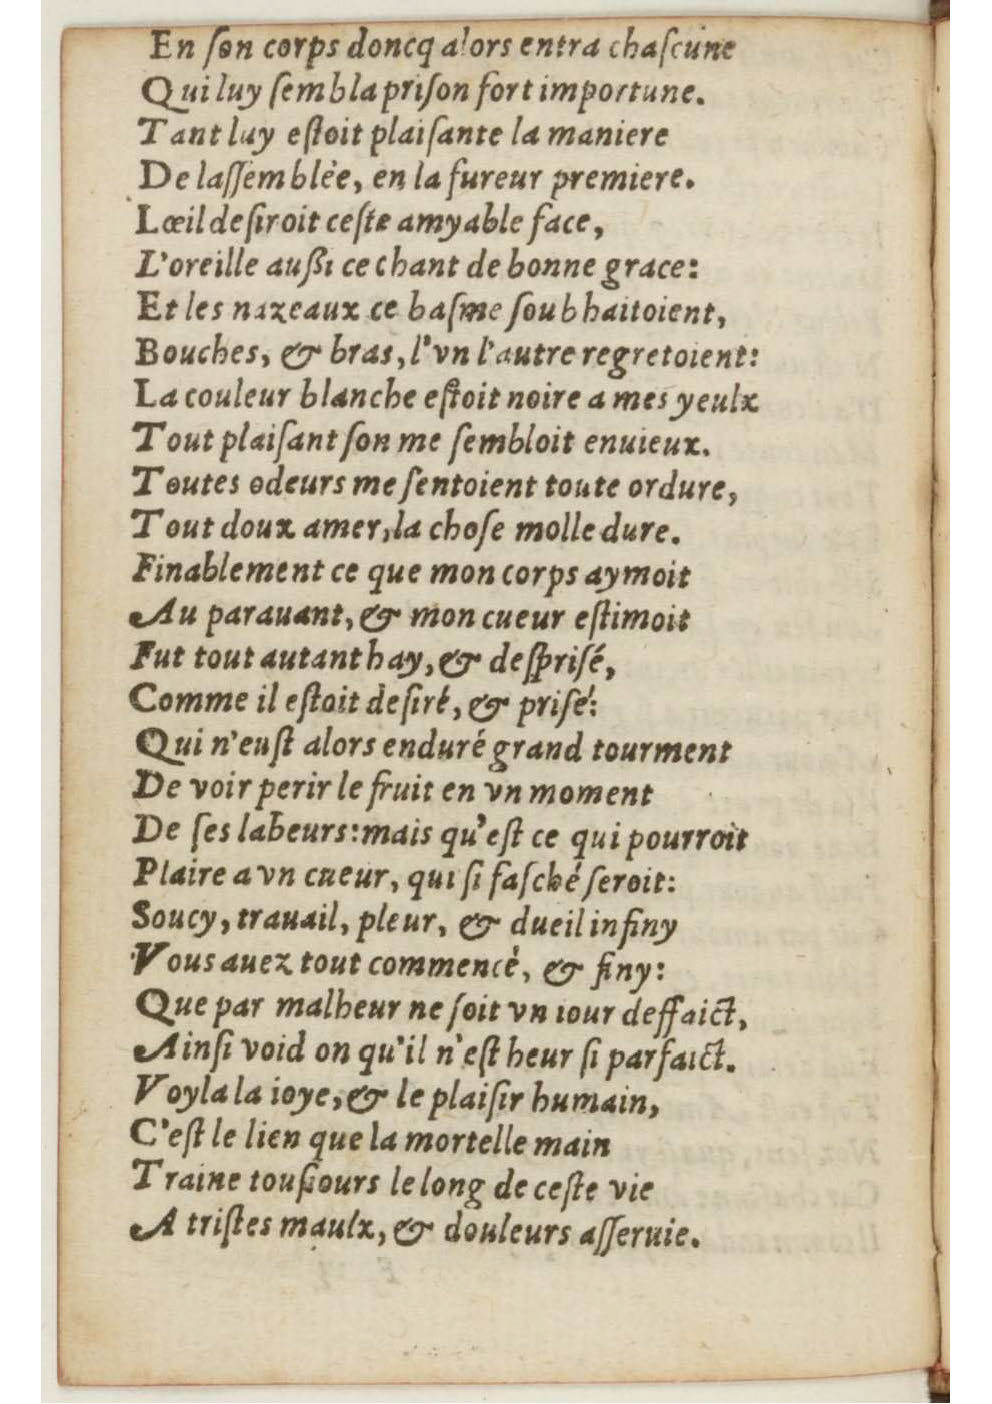 En ſon corps doncq alors entra chaſcune
Qui luy ſembla priſon fort importune.
Tant luy eſtoit plaiſante la maniere
De laſſemblée, en la fureur premiere.
Lœil deſiroit ceſte amyable face,
L'oreille auſsi ce chant de bonne grace:
Et les nazeaux ce baſme ſoubhaitoient,
Bouches, & bras, l'vn l'autre regretoient:
La couleur blanche eſtoit noire a mes yeulx
Tout plaiſant ſon me ſembloit enuieux.
Toutes odeurs me ſentoient toute ordure,
Tout doux amer, la choſe molle dure.
Finablement ce que mon corps aymoit
Au parauant, & mon cueur eſtimoit
Fut tout autant hay, & deſpriſé,
Comme il eſtoit deſiré, & priſé:
Qui n'euſt alors enduré grand tourment
De voir perir le fruit en vn moment
De ſes labeurs: mais qu'eſt ce qui pourroit
Plaire a vn cueur, qui ſi faſché ſeroit:
Soucy, trauail, pleur, & dueil infiny
Vous auez tout commencé, & finy:
Que par malheur ne ſoit vn iour deffaict,
Ainſi void on qu'il n'eſt heur ſi parfaict.
Voyla la ioye, & le plaiſir humain,
C'eſt le lien que la mortelle main
Traine touſiours le long de ceſte vie
A triſtes maulx, & douleurs aſſeruie.